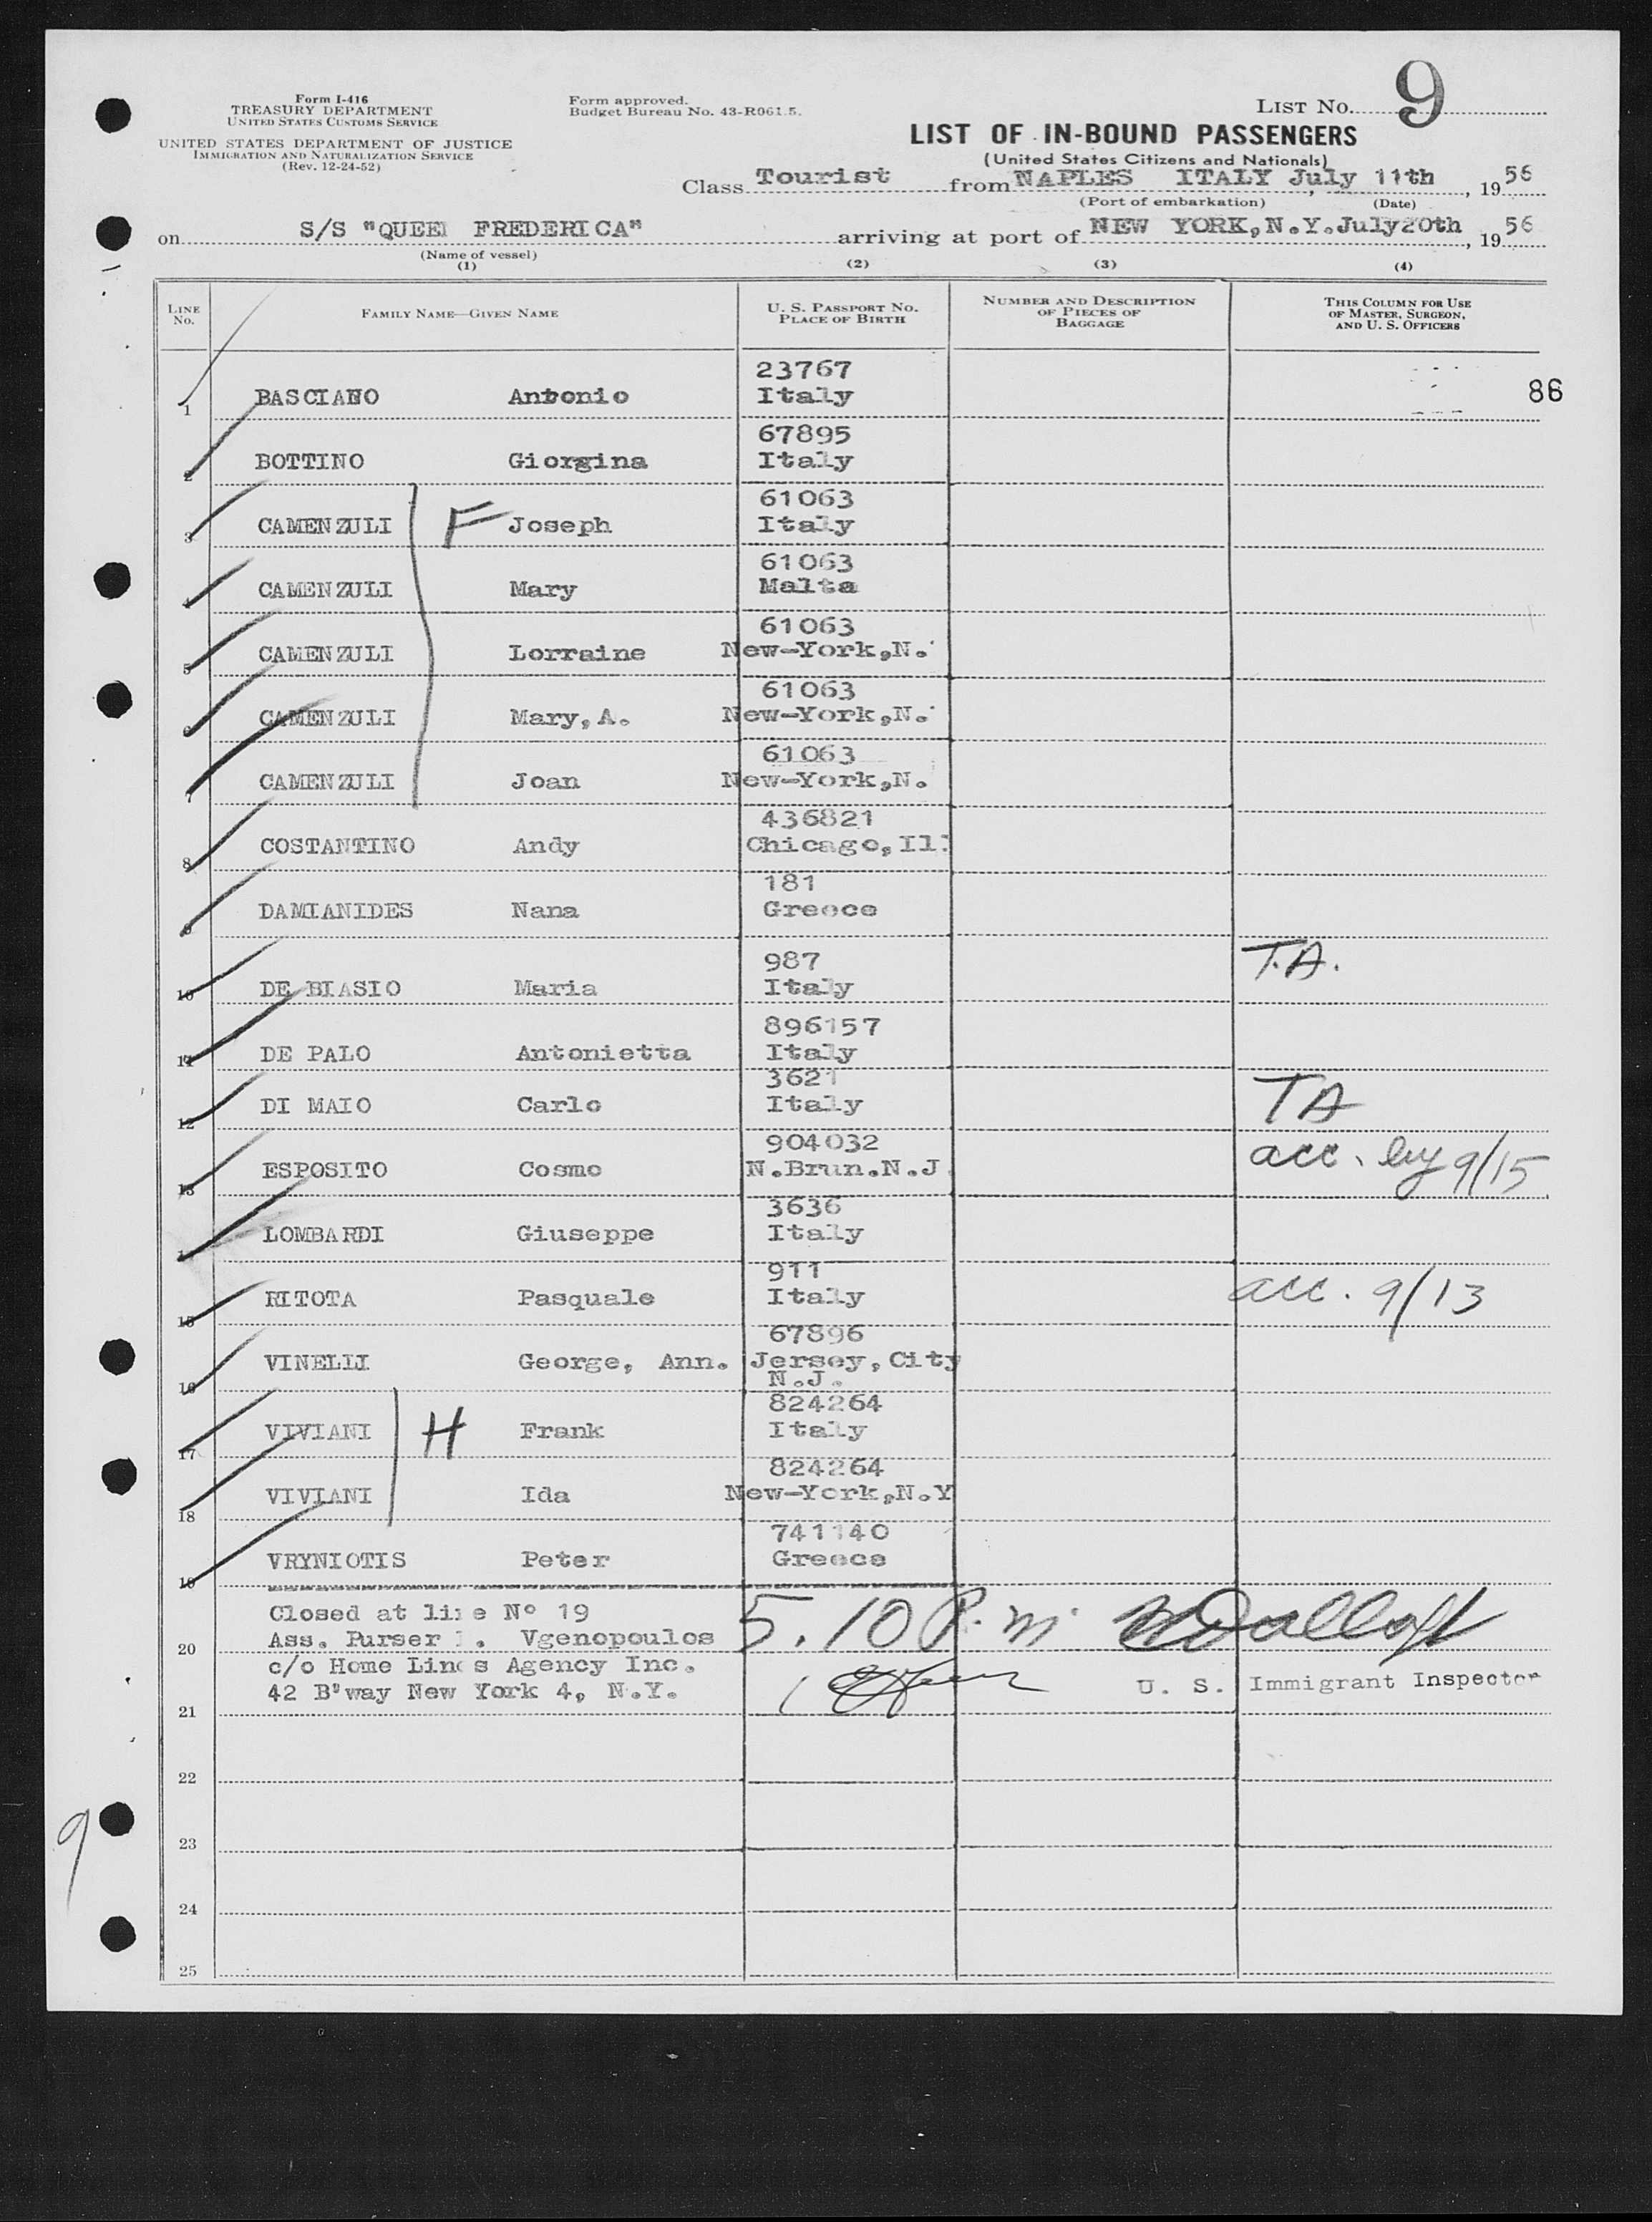 9
Form I-416
TREASURY DEPARTMENT
UNITED STATES CUSTOMS SERVICE
UNITED STATES DEPARTMENT OF JUSTICE
IMMIGRATION AND NATURALIZATION SERVICE
(Rev. 12-24-52)
Form approved.
Budget Bureau No. 43-R061.5.
LIST NO.
LIST OF IN-BOUND PASSENGERS
(United States Citizens and Nationals)
Class Tourist from NAPLES ITALY July 11th, 1956
(Port of embarkation) (Date)
on S/S "QUEEN FREDERICA" arriving at port of NEW YORK,N.Y.July20th, 1956
(Name of vessel)
(1) (2) (3) (4)
LINE NO. FAMILY NAME—GIVEN NAME U. S. PASSPORT NO. PLACE OF BIRTH NUMBER AND DESCRIPTION OF PIECES OF BAGGAGE THIS COLUMN FOR USE OF MASTER, SURGEON, AND U. S. OFFICERS
23767
1 BASCIANO Antonio Italy 86
67895
2 BOTTINO Giorgina Italy
61063
3 CAMENZULI F Joseph Italy
61063
4 CAMENZULI Mary Malta
61063
5 CAMENZULI Lorraine New-York,N.
61063
6 CAMENZULI Mary,A. New-York,N.
61063
7 CAMENZULI Joan New-York,N.
436821
8 COSTANTINO Andy Chicago,Ill
181
9 DAMIANIDES Nana Greece
987 T.A.
10 DE BIASIO Maria Italy
896157
11 DE PALO Antonietta Italy
3621
12 DI MAIO Carlo Italy TA
904032
13 ESPOSITO Cosmo N.Brun.N.J. acc. by 9/15
3636
14 LOMBARDI Giuseppe Italy
911
15 RITOTA Pasquale Italy acc. 9/13
67896
16 VINELLI George, Ann. Jersey,City
N.J.
824264
17 VIVIANI H Frank Italy
824264
18 VIVIANI Ida New-York,N.Y
741140
19 VRYNIOTIS Peter Greece
Closed at line Nº 19 5.10 P.m
20 Ass. Purser Vgenopoulos
c/o Home Lines Agency Inc.
42 B'way New York 4, N.Y. U. S. Immigrant Inspector
21
22
23
9
24
25